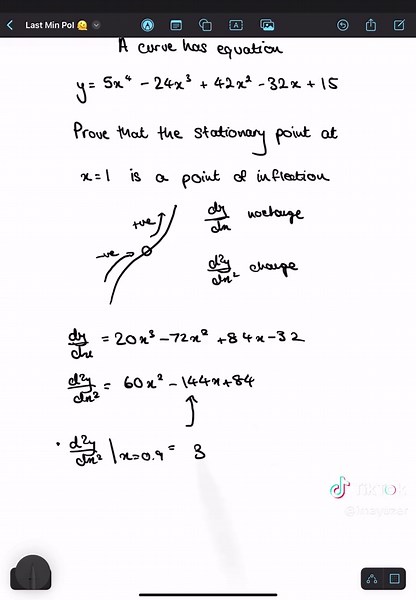 Last Min Pol 🤗
A curve has equation
y = 5x⁴ - 24x³ + 42x² - 32x + 15
Prove that the stationary point at
x=1 is a point of inflection
+ve
dy/dx no change
-ve
d²y/dx² change
dy/dx = 20x³ - 72x² + 84x - 32
d²y/dx² = 60x² - 144x + 84
• d²y/dx² | x=0.9 = 3
TikTok